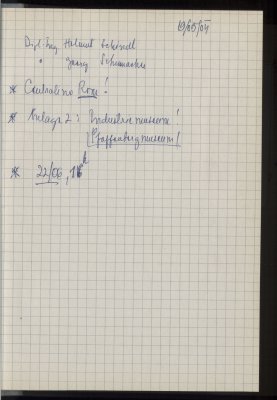 19/05/04
Dipl. Ing Helmut
" Georg Schumacher
* Centralino Rom!
* Anlage 2: Industriemuseum!
Pfaffenbergmuseum!
* 22/06, 16h